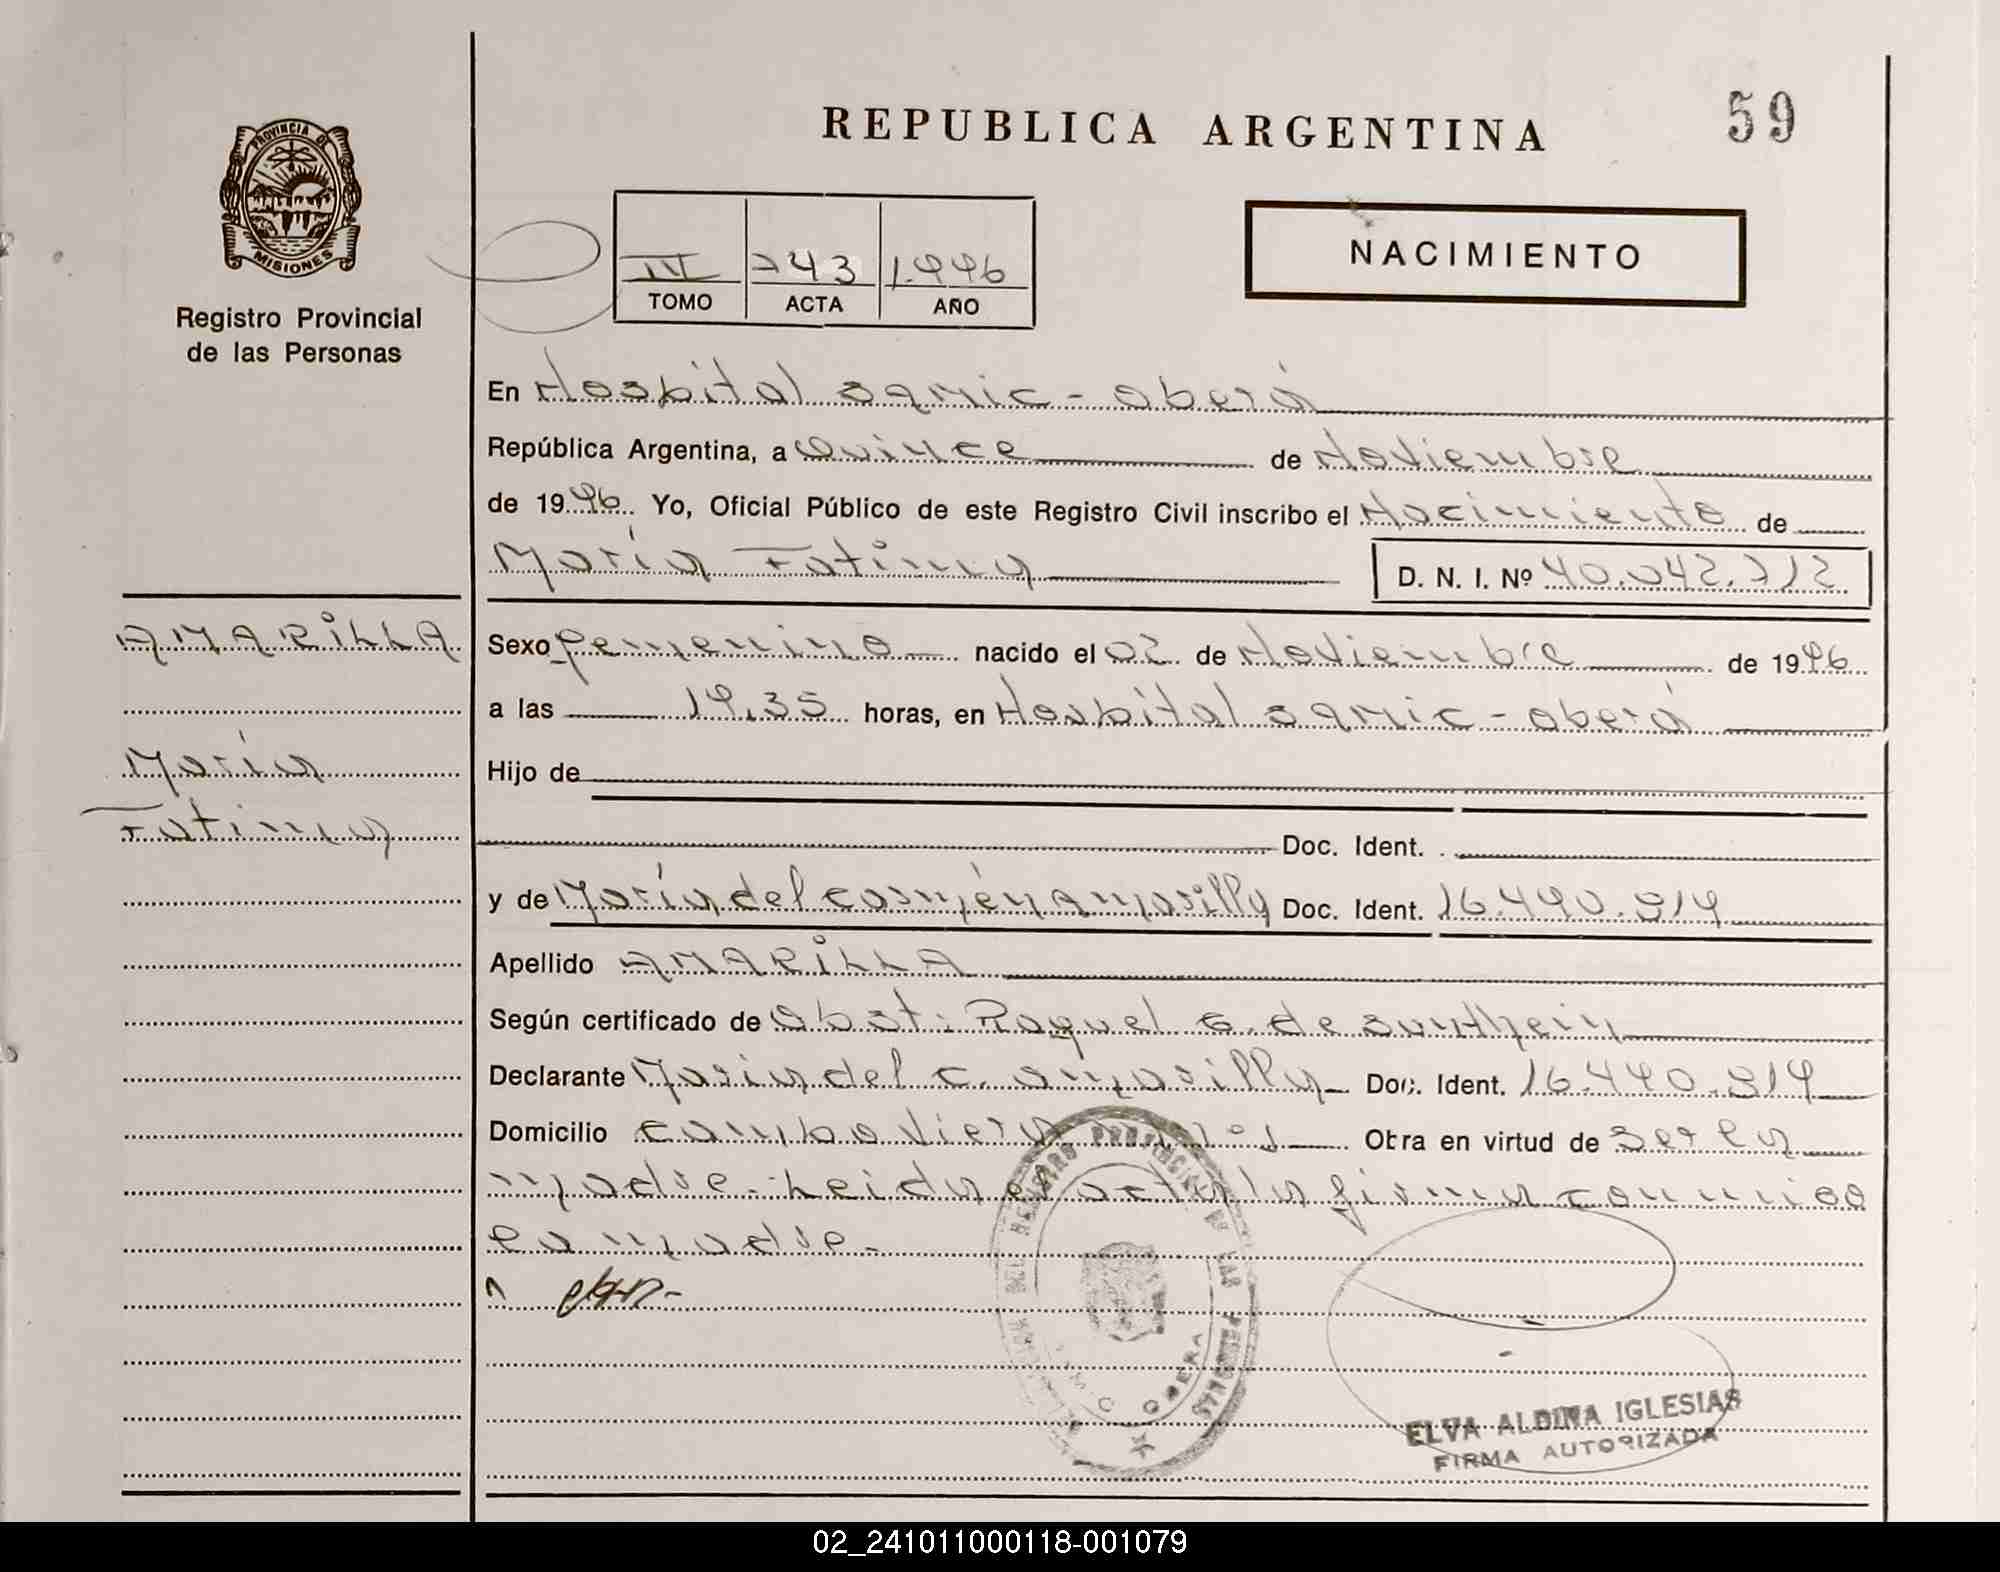 REPUBLICA ARGENTINA
59
PROVINCIA DE
MISIONES
Registro Provincial
de las Personas
743 1.996
TOMO ACTA AÑO
NACIMIENTO
En Hospital Samic - Oberá
República Argentina, a Quince de Noviembre
de 1996. Yo, Oficial Público de este Registro Civil inscribo el Nacimiento de
María Fatima D. N. I. Nº 40.042.712
AMARILLA
María
Fatima
Sexo femenino nacido el 02 de Noviembre de 1996
a las 19,35 horas, en Hospital Samic - Oberá
Hijo de
Doc. Ident.
y de María del Carmen Amarilla Doc. Ident. 16.490.919
Apellido AMARILLA
Según certificado de Obst: Raquel G. de
Declarante María del C. Amarilla Doc. Ident. 16.490.919
Domicilio Campo Viera Otra en virtud de ser la
madre. Leida el acta la firma conmigo
la madre.-
REGISTRO PROVINCIAL DE LAS PERSONAS
OBERA
ELVA ALDINA IGLESIAS
FIRMA AUTORIZADA
02_241011000118-001079